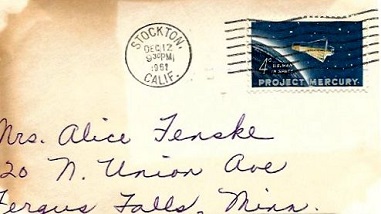 STOCKTON,
DEC 12
930PM
CALIF.
4¢ U.S. MAN
IN SPACE
PROJECT MERCURY
Mrs. Alice Fenske
20 N. Union Ave
Fergus Falls, Minn.